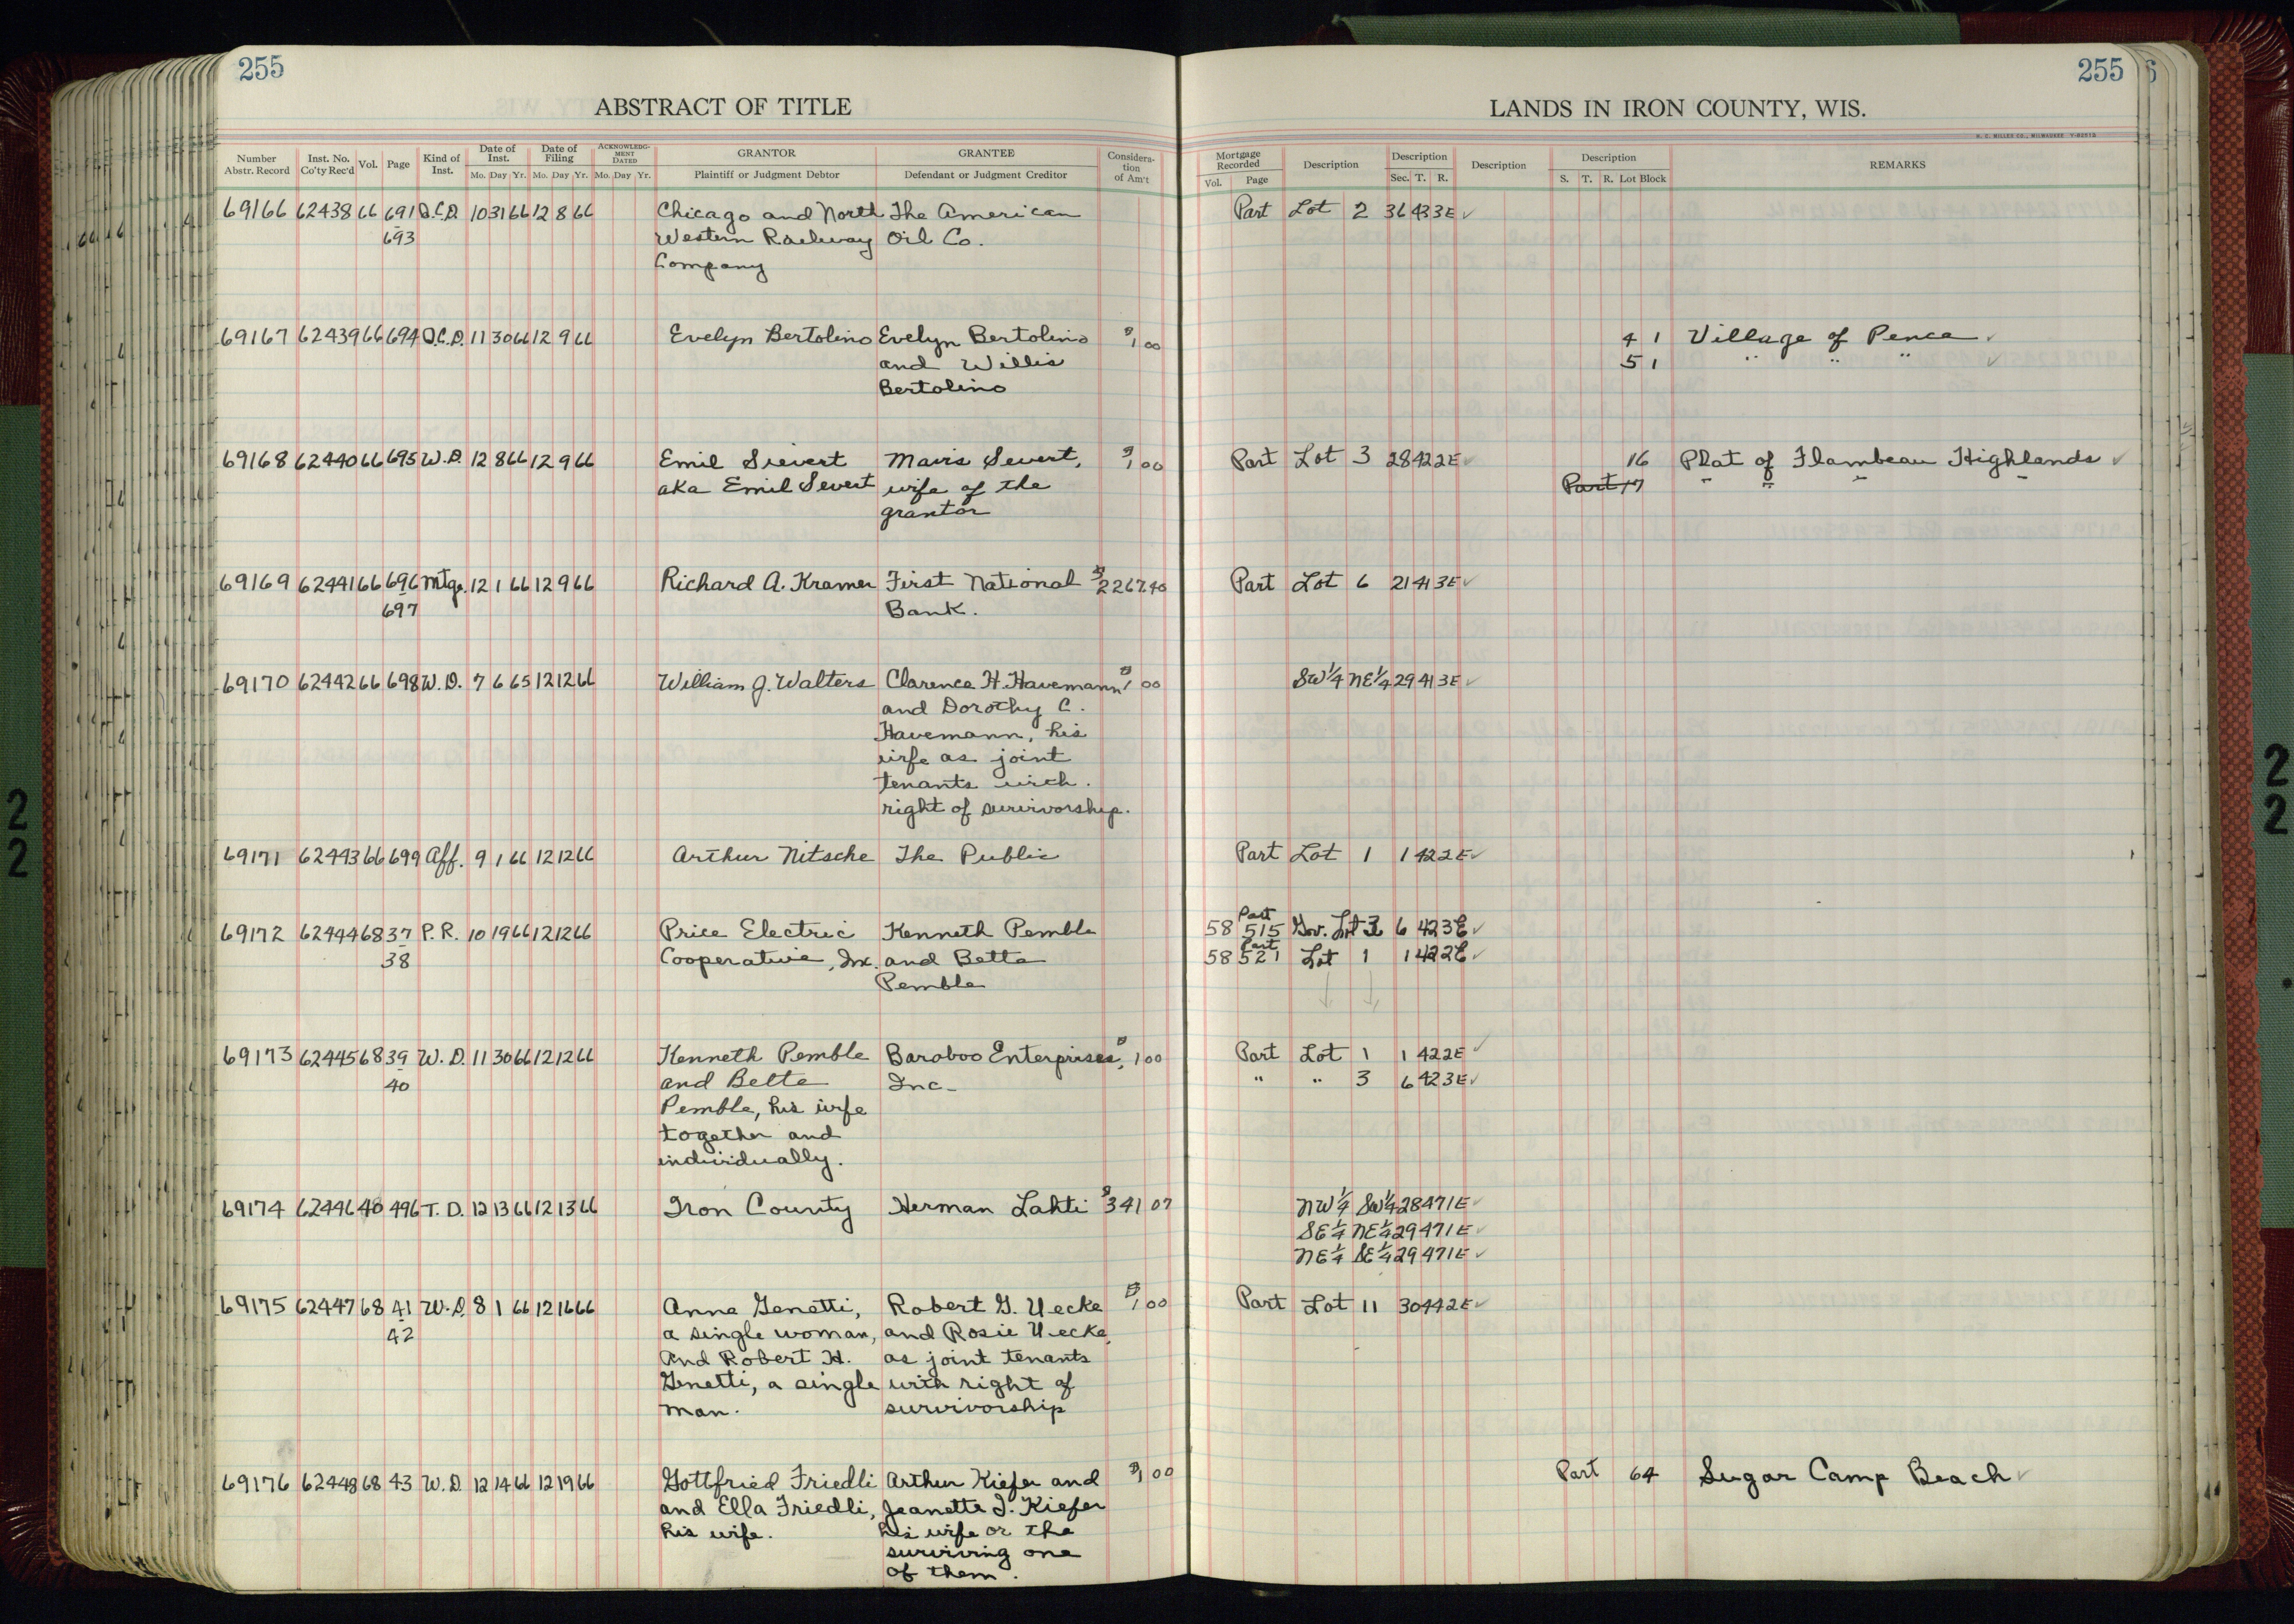 255
ABSTRACT OF TITLE
Number Abstr. Record Inst. No. Co'ty Rec'd Vol. Page Kind of Inst. Date of Inst. Mo. Day Yr. Date of Filing Mo. Day Yr. ACKNOWLEDGMENT DATED Mo. Day Yr. GRANTOR Plaintiff or Judgment Debtor GRANTEE Defendant or Judgment Creditor Consideration of Am't
255
LANDS IN IRON COUNTY, WIS.
Mortgage Recorded Vol. Page Description Description Sec. T. R. Description Description S. T. R. Lot Block REMARKS
69166 62438 66 691 Q.C.D. 10 31 66 12 8 66 Chicago and North The American Part Lot 2 36 43 3E ✓
693 Western Railway Oil Co.
Company
69167 62439 66 694 Q.C.D. 11 30 66 12 9 66 Evelyn Bertolino Evelyn Bertolino $1 00 4 1 Village of Pence ✓
and Willis 5 1 " " " ✓
Bertolino
69168 62440 66 695 W.D. 12 8 66 12 9 66 Emil Sievert Mavis Severt, $1 00 Part Lot 3 28 42 2E ✓ 16 Plat of Flambeau Highlands ✓
aka Emil Severt wife of the Part 17 " " " "
grantor
69169 62441 66 696 Mtge. 12 1 66 12 9 66 Richard A. Kramer First National $2267.40 Part Lot 6 21 41 3E ✓
697 Bank.
69170 62442 66 698 W.D. 7 6 65 12 12 66 William J. Walters Clarence H. Havemann $1 00 SW¼ NE¼ 29 41 3E ✓
and Dorothy C.
Havemann, his
wife as joint
tenants with
right of survivorship.
69171 62443 66 699 Aff. 9 1 66 12 12 66 Arthur Nitsche The Public Part Lot 1 1 42 2E ✓
69172 62444 68 37 P.R. 10 19 66 12 12 66 Price Electric Kenneth Pemble 58 515 Part Gov. Lot 3 6 42 3E ✓
38 Cooperative, Inc. and Bette 58 521 Part Lot 1 1 42 2E ✓
Pemble
69173 62445 68 39 W.D. 11 30 66 12 12 66 Kenneth Pemble Baraboo Enterprises, $1 00 Part Lot 1 1 42 2E ✓
40 and Bette Inc. " " 3 6 42 3E ✓
Pemble, his wife
together and
individually.
69174 62446 48 496 T.D. 12 13 66 12 13 66 Iron County Herman Lahti $341 07 NW¼ SW¼ 28 47 1E ✓
SE¼ NE¼ 29 47 1E ✓
NE¼ SE¼ 29 47 1E ✓
69175 62447 68 41 W.D. 8 1 66 12 16 66 Anna Genetti, Robert G. Uecke $1 00 Part Lot 11 30 44 2E ✓
42 a single woman, and Rosie Uecke,
and Robert H. as joint tenants
Genetti, a single with right of
man. survivorship
69176 62448 68 43 W.D. 12 14 66 12 19 66 Gottfried Friedli Arthur Kiefer and $1 00 Part 64 Sugar Camp Beach ✓
and Ella Friedli, Jeanette J. Kiefer
his wife. his wife or the
surviving one
of them.
22
22